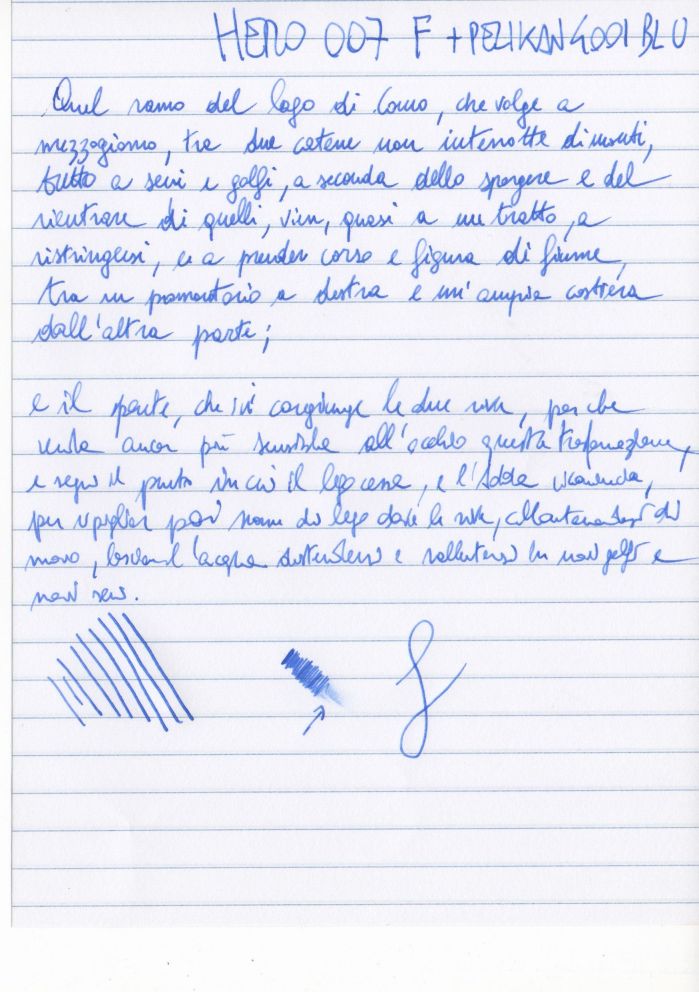 HERO 007 F + PELIKAN 4001 BLU
Quel ramo del lago di Como, che volge a
mezzogiorno, tra due catene non interrotte di monti,
tutto a seni e golfi, a seconda dello sporgere e del
rientrare di quelli, vien, quasi a un tratto, a
ristringersi, e a prender corso e figura di fiume,
tra un promontorio a destra e un'ampia costiera
dall'altra parte;
e il ponte, che ivi congiunge le due rive, par che
renda ancor più sensibile all'occhio questa trasformazione,
e segni il punto in cui il lago cessa, e l'Adda rincomincia,
per ripigliar poi nome di lago dove le rive, allontanandosi di
nuovo, lascian l'acqua distendersi e rallentarsi in nuovi golfi e
nuovi seni.